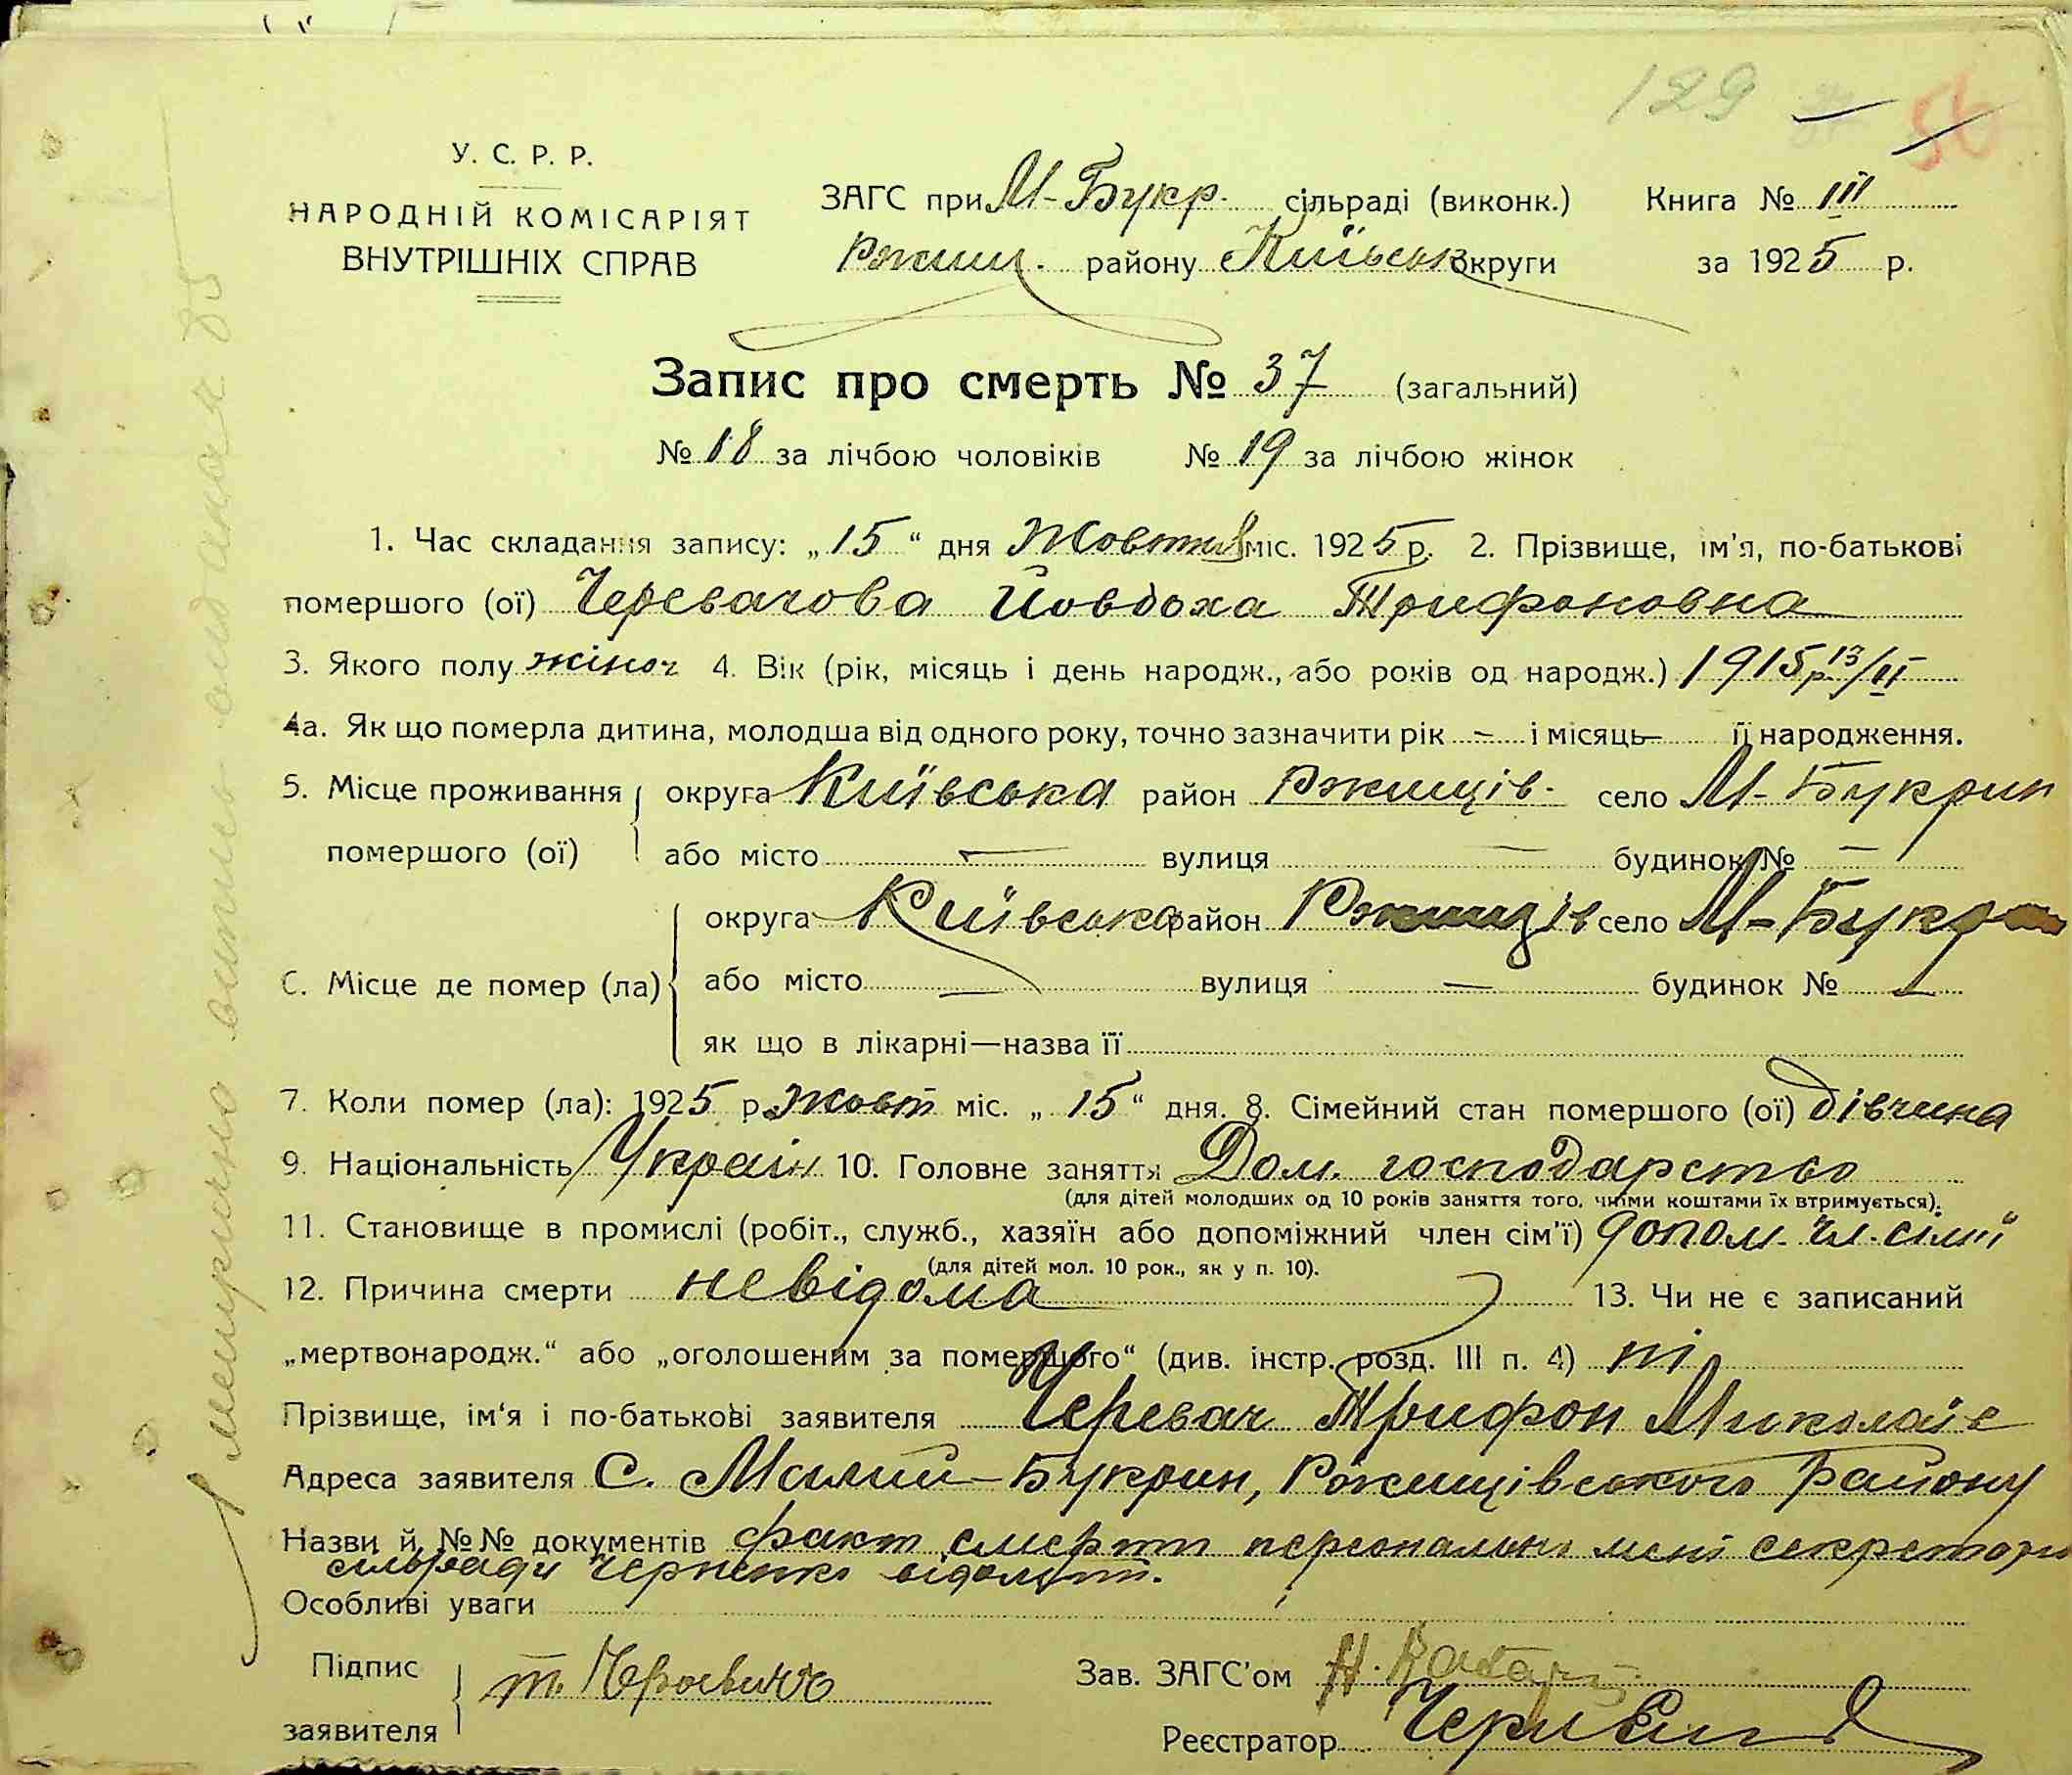 129 56
У. С. Р. Р.
НАРОДНІЙ КОМІСАРІЯТ
ВНУТРІШНІХ СПРАВ
ЗАГС при М-Букр. сільраді (виконк.) Книга № III
Ржищ. району Київськ округи за 1925 р.
Запис про смерть № 37 (загальний)
№ 18 за лічбою чоловіків № 19 за лічбою жінок
1. Час складання запису: „15“ дня Жовтня міс. 1925 р. 2. Прізвище, ім'я, по-батькові
помершого (ої) Черевачова Йовдоха Трифоновна
3. Якого полу жіноч 4. Вік (рік, місяць і день народж., або років од народж.) 1915р 13/II
4а. Як що померла дитина, молодша від одного року, точно зазначити рік — і місяць — її народження.
5. Місце проживання округа Київська район Ржищів. село М-Букрин
помершого (ої) або місто — вулиця — будинок № —
округа Київська район Ржищів село М-Букрин
6. Місце де помер (ла) або місто — вулиця — будинок № —
як що в лікарні—назва її
7. Коли помер (ла): 1925 р. Жовт міс. „15“ дня. 8. Сімейний стан помершого (ої) дівчина
9. Національність Україн 10. Головне заняття Дом. господарство
(для дітей молодших од 10 років заняття того, чиїми коштами їх втримується).
11. Становище в промислі (робіт., служб., хазяїн або допоміжний член сім'ї) допом. чл. сімї
(для дітей мол. 10 рок., як у п. 10).
12. Причина смерти невідома 13. Чи не є записаний
„мертвонародж.“ або „оголошеним за помершого“ (див. інстр. розд. III п. 4) ні
Прізвище, ім'я і по-батькові заявителя Черевач Трифон Миколаїв
Адреса заявителя С. Малий-Букрин, Ржищівського Району
Назви й №№ документів факт смерти персонально мені секретарю
сільради Черненко відомий.
Особливі уваги
Підпис
заявителя
Т. Черевач
Зав. ЗАГС'ом
Реєстратор